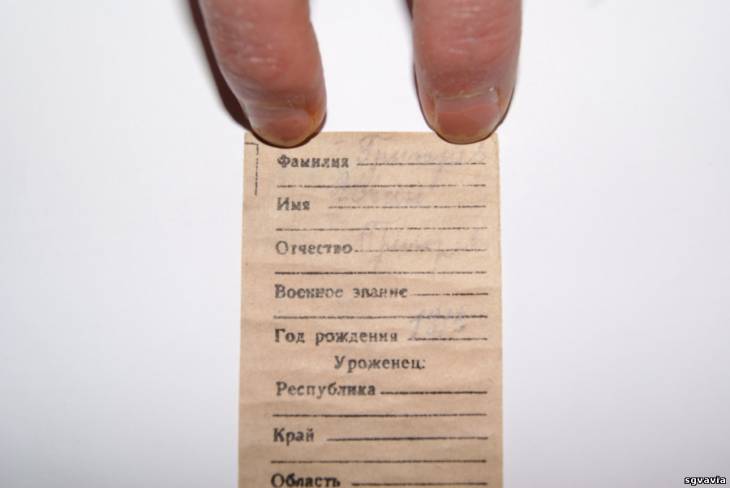 Фамилия
Имя
Отчество
Военное звание
Год рождения
Уроженец:
Республика
Край
Область
sgvavia